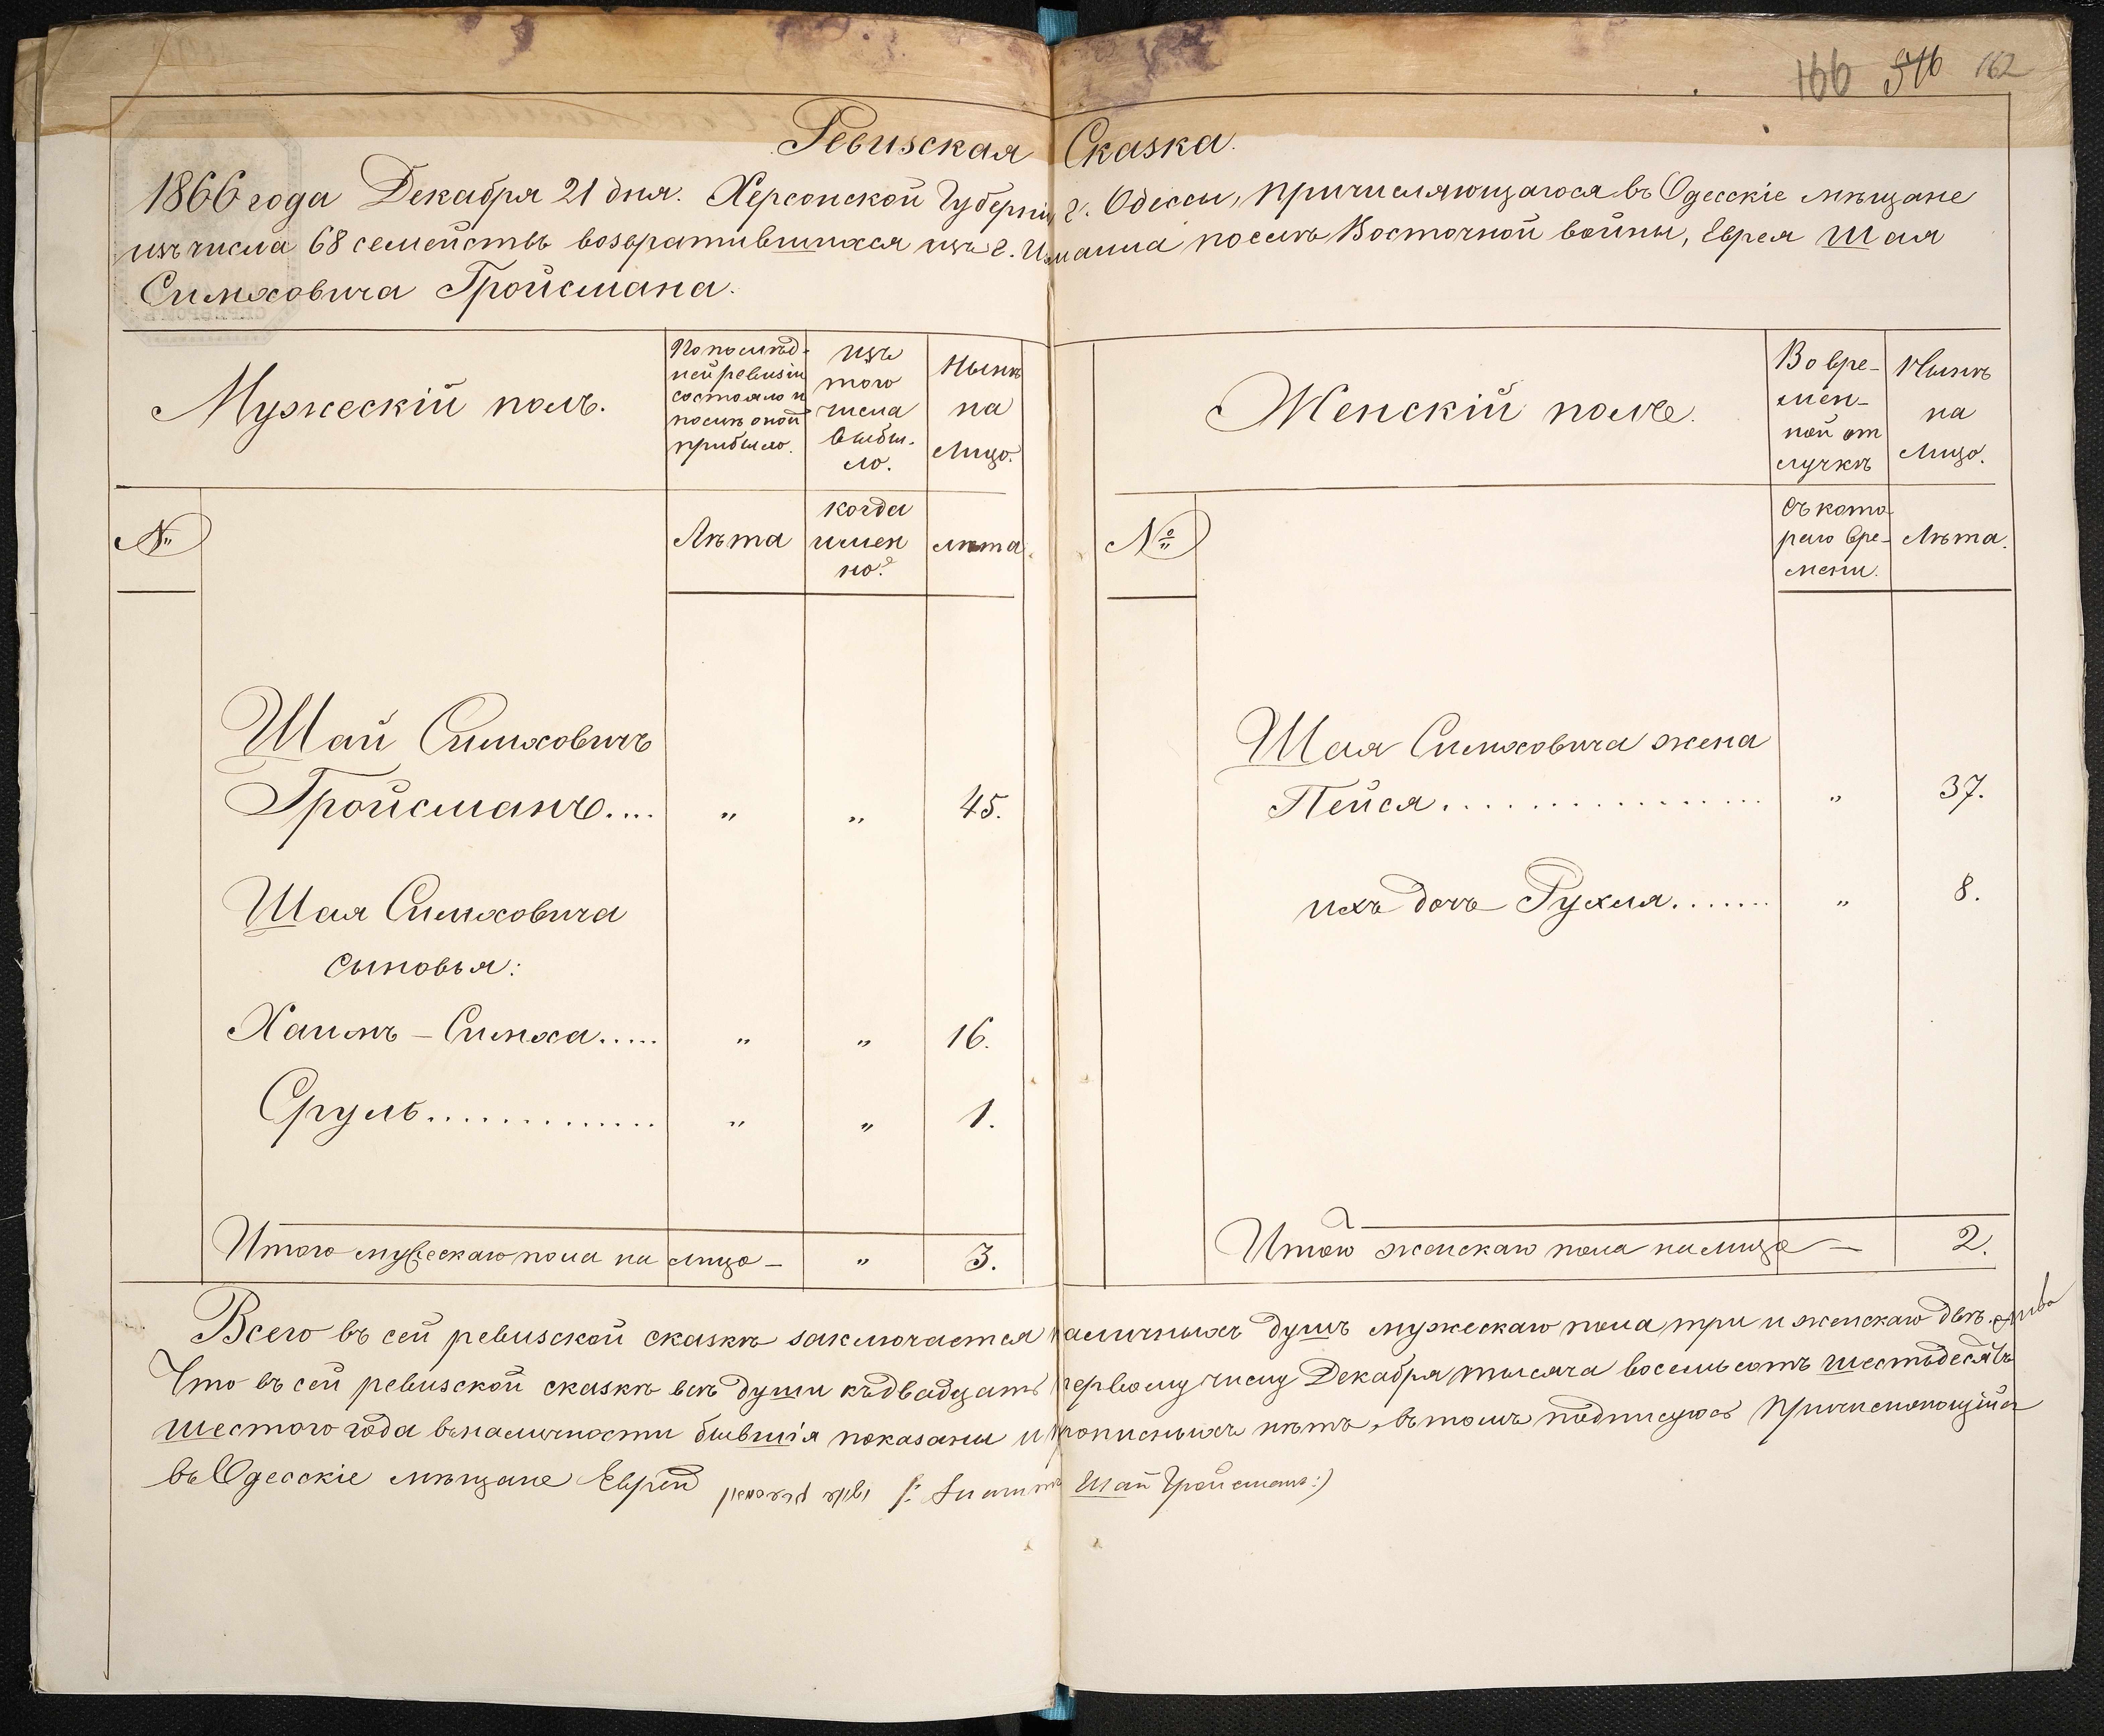 166 546 162
Ревизская Сказка.
1866 года Декабря 21 дня. Херсонской Губерніи, г. Одессы, причисляющагося въ Одесскіе мѣщане
изъ числа 68 семействъ возвратившихся изъ г. Измаила послѣ Восточной войны, Еврея Шая
Симховича Гройсмана.
СЕРЕБРОМЪ
Мужескій полъ.
По послѣд-
ней ревизіи
состояло и
послѣ оной
прибыло.
изъ
того
числа
выбы-
ло.
Нынѣ
на
лицо.
№
Лѣта
когда
имен
но?
лѣта.
Шай Симховичъ
Гройсманъ.... „ „ 45.
Шая Симховича
сыновья:
Хаимъ - Симха..... „ „ 16.
Сруль............. „ „ 1.
Итого мужескаго пола на лицо - „ 3.
Женскій полъ.
Во вре-
мен-
ной от
лучкѣ
Нынѣ
на
лицо.
№
Съ кото
раго вре-
мени.
Лѣта.
Шая Симховича жена
Пейся................. „ 37.
ихъ дочь Рухля....... „ 8.
Итого женскаго пола на лицо — 2.
Всего въ сей ревизской сказкѣ заключается наличныхъ душъ мужескаго пола три и женскаго двѣ.
Что въ сей ревизской сказкѣ всѣ души къ двадцать первому числу Декабря тысяча восемьсотъ шестьдесятъ
шестого года въ наличности бывшія показаны и прописныхъ нѣтъ, въ томъ подписуюсь причисляющійся
въ Одесскіе мѣщане Еврей Шай Гройсманъ:)